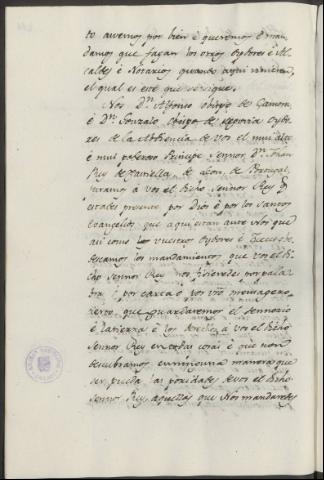 to avemos por bien é queremos é man-
damos que façan los otros oydores é Al-
caldes é Notarios quando aqui vinieren,
el qual es este que se sigue.
Nos Dn. Alfonso obispo de Çamora,
é Dn. Gonzalo Obispo de Segovia Oydo-
res de la Abdiencia de vos el mui alto
é mui poderoso Principe Sennor Dn. Johan
Rey de Castiella, de Leon, de Portugal,
juramos á vos el dicho Sennor Rey qe.
estades presente por Dios é por los santos
evangelios que aqui estan ante Nos que
asi como los vuestros Oydores é
los mandamientos que vos el di-
cho Sennor Rey nos fisieredes por pala-
bra, ó por carta ó por vro. mensagero
cierto, que guardaremos el sennorio
é la tierra é los derechos á vos el dicho
Sennor Rey en todas cosas é que non
descubramos en ninguna manera que
ser pueda las poridades de vos el dicho
Sennor Rey, aquellas que Nos mandaredes